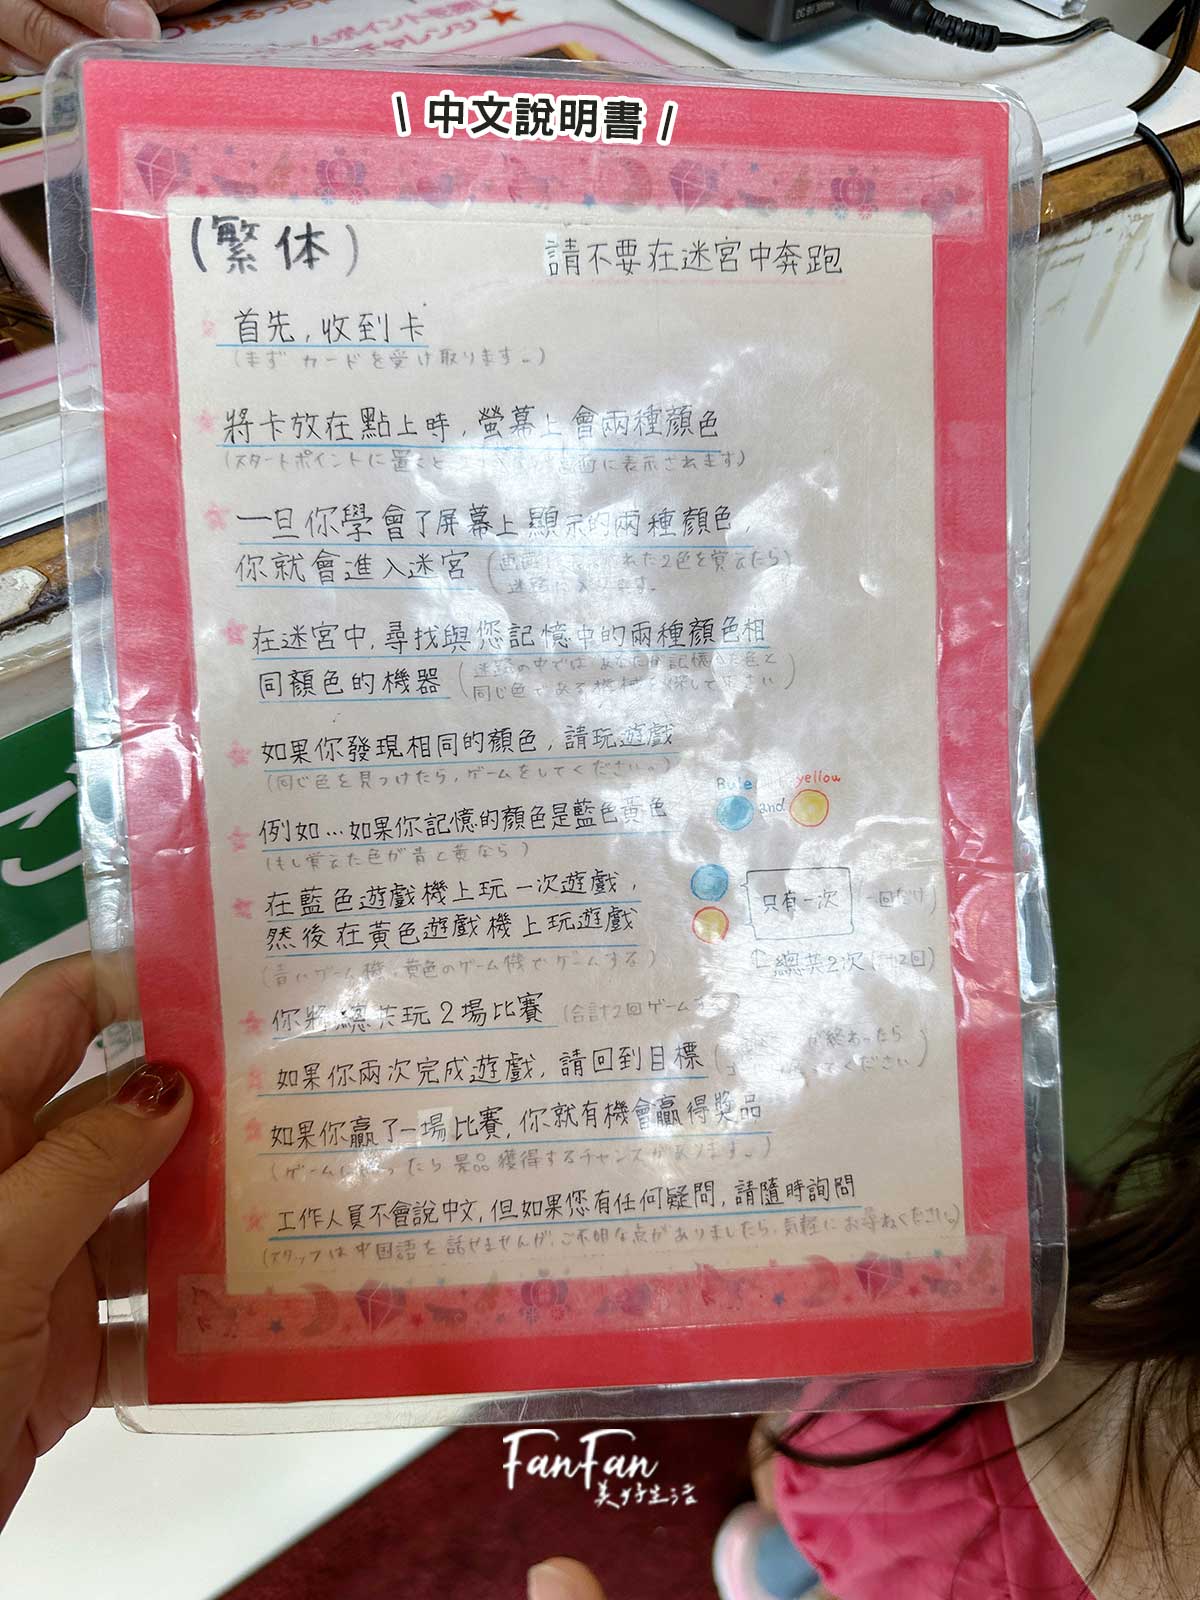 \ 中文說明書 /
(繁体)
請不要在迷宮中奔跑
首先,收到卡
(まず カードを受け取ります。)
將卡放在點上時,螢幕上會兩種顏色
(スタートポイントに置くと 画面に表示されます)
一旦你學會了屏幕上顯示的兩種顏色,
你就會進入迷宮
れた2色を覚えたら)
在迷宮中,尋找與您記憶中的兩種顏色相
同顏色的機器
(迷路の中では あなたが記憶した色と
同じ色である機械を探して下さい)
如果你發現相同的顏色,請玩遊戲
(同じ色を見つけたら,ゲームをしてください。)
Bule yellow
and
例如…如果你記憶的顏色是藍色黃色
(もし覚えた色が青く黄なら)
在藍色遊戲機上玩一次遊戲,
然後在黃色遊戲機上玩遊戲
只有一次 (一回だけ)
總共2次 (計2回)
(青いゲーム機、黄色のゲーム機でゲームする)
你將總共玩2場比賽 (合計2回ゲームする)
如果你兩次完成遊戲,請回到目標
が終わったら
ってください)
如果你贏了一場比賽,你就有機會贏得獎品
(ゲームに勝ったら景品獲得するチャンスがあります。)
工作人員不會說中文,但如果您有任何疑問,請隨時詢問
(スタッフは中国語を話せませんが,ご不明な点がありましたら,気軽にお尋ねください。)
FanFan
美好生活